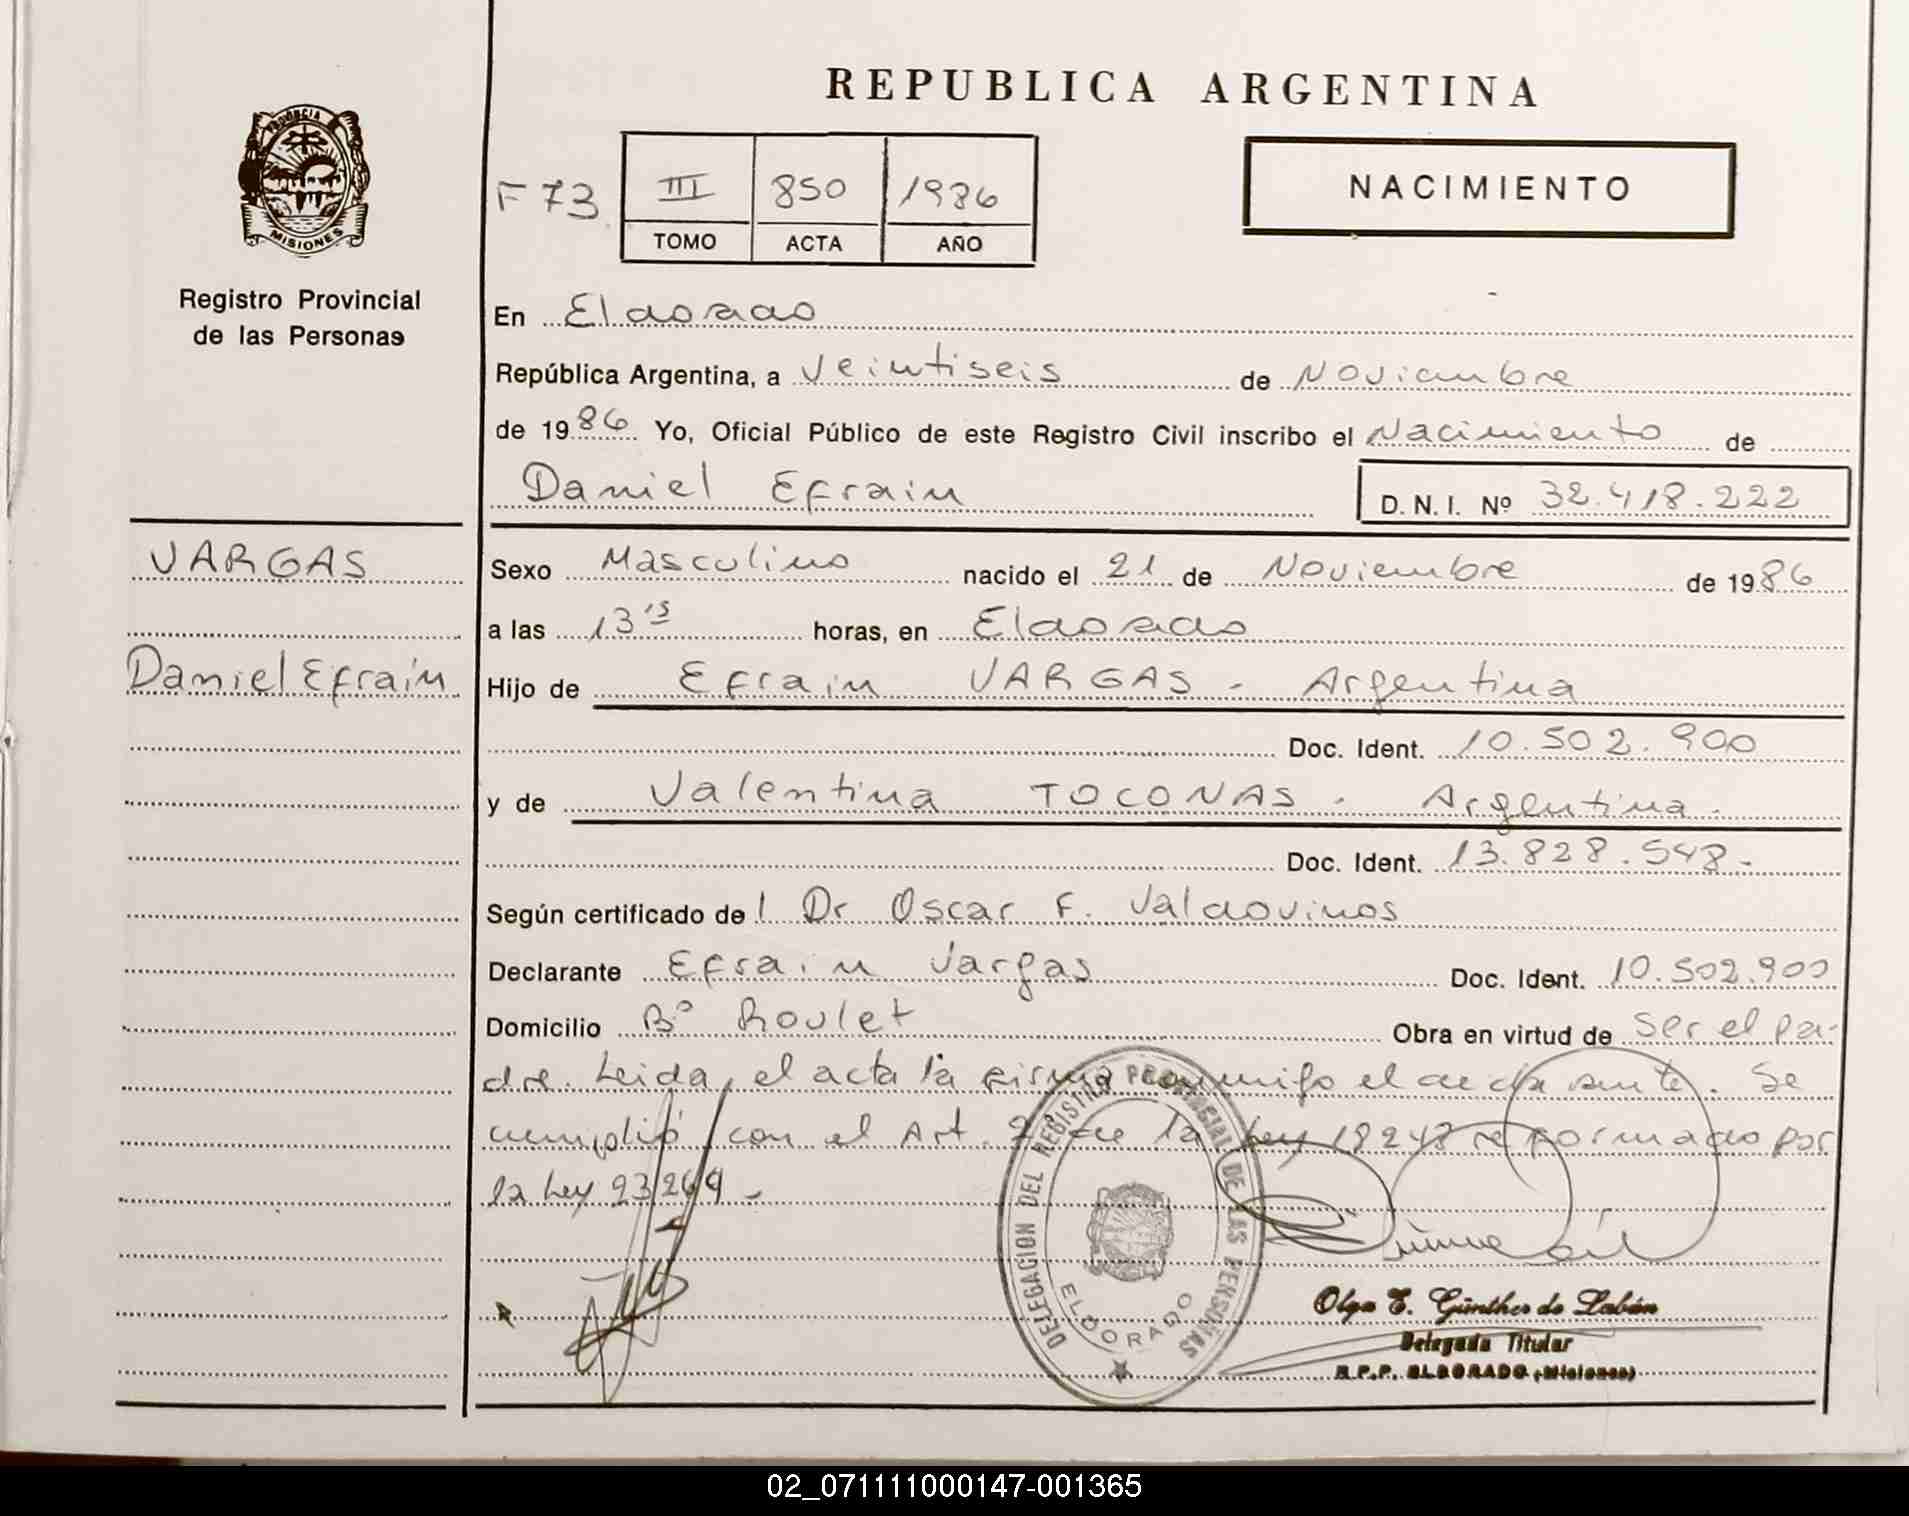 REPUBLICA ARGENTINA
PROVINCIA
MISIONES
Registro Provincial
de las Personas
F 73
III 850 1986
TOMO ACTA AÑO
NACIMIENTO
En Eldorado
República Argentina, a Veintiseis de Noviembre
de 1986 Yo, Oficial Público de este Registro Civil inscribo el Nacimiento de
Daniel Efrain D. N. I. Nº 32.418.222
VARGAS
Daniel Efrain
Sexo Masculino nacido el 21 de Noviembre de 1986
a las 13 15 horas, en Eldorado
Hijo de Efrain VARGAS - Argentina
Doc. Ident. 10.502.900
y de Valentina TOCONAS - Argentina -
Doc. Ident. 13.828.548 -
Según certificado de l Dr Oscar F. Valdovinos
Declarante Efrain Vargas Doc. Ident. 10.502.900
Domicilio Bº Roulet Obra en virtud de ser el pa-
dre. Leida, el acta la firma conmigo el declarante. Se
cumplió con el Art. 2 de la Ley 18248 reformado por
la Ley 23264 -
DELEGACION DEL REGISTRO PROVINCIAL DE LAS PERSONAS
ELDORADO
Olga E. Günther de Labán
Delegada Titular
R.P.P. ELDORADO (Misiones)
02_071111000147-001365